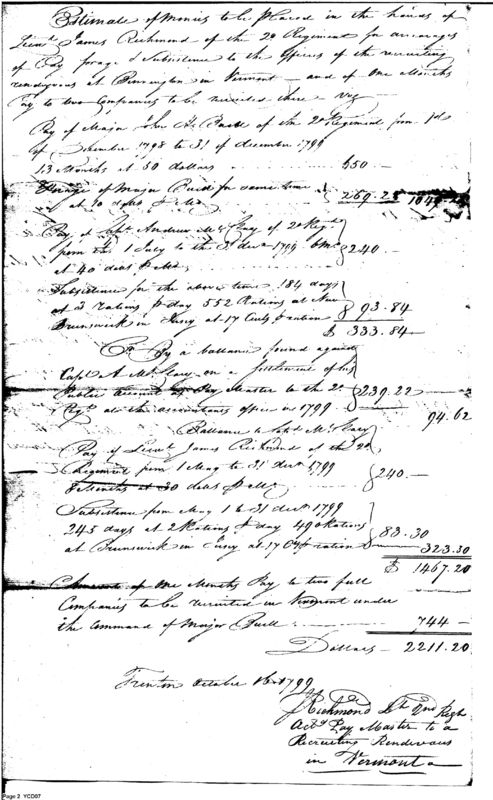 Estimate of Monies to be placed in the hands of
Lieut James Richmond of the 2d Regiment for arrearages
of Pay forage & Subsistence to the officers of the recruiting
rendezvous at Bennington in Vermont — and of One Months
Pay to two Companies to be recruited there — viz
Pay of Major Jno H. Buell of the 2d Regiment from 1st
of December 1798 to 31 of december 1799
13 Months at 50 dollars 650 —
Forage of Major Buell for same time
at 10 dolls ⅌ Mo 269.25
Pay of Capt Andrew McClary of 2d Regt
from the 1 July to the 31 decr 1799 6 Mo 240 —
at 40 dolls ⅌ Mo
Subsistence for the above time 184 days
at 3 rations ⅌ day 552 Rations at New
Brunswick in Jersey at 17 Cents ⅌ ration 93.84
$ 333.84
Cr By a ballance found against
Capt A McClary on a settlement of his
Public account as Pay Master to the 2d
Regt at the accountants office in 1799 239.22
94.62
Ballance to Capt McClary
Pay of Lieut James Richmond of the 2d
Regiment from 1 May to 31 decr 1799 240 —
8 Months at 30 dolls ⅌ Mo
Subsistence from May 1 to 31 decr 1799
245 days at 2 Rations ⅌ day 490 Rations 83.30
at Brunswick in Jersey at 17 Cts ⅌ ration 323.30
$ 1467.20
Amount of One Months Pay to two full
Companies to be recruited in Vermont under
the Command of Major Buell 744 —
Dollars — 2211.20
Trenton October 16 1799
J Richmond Lt 2nd Regt
Actg Pay Master to a
Recruiting Rendezvous
in Vermont
Page 2 YCD07